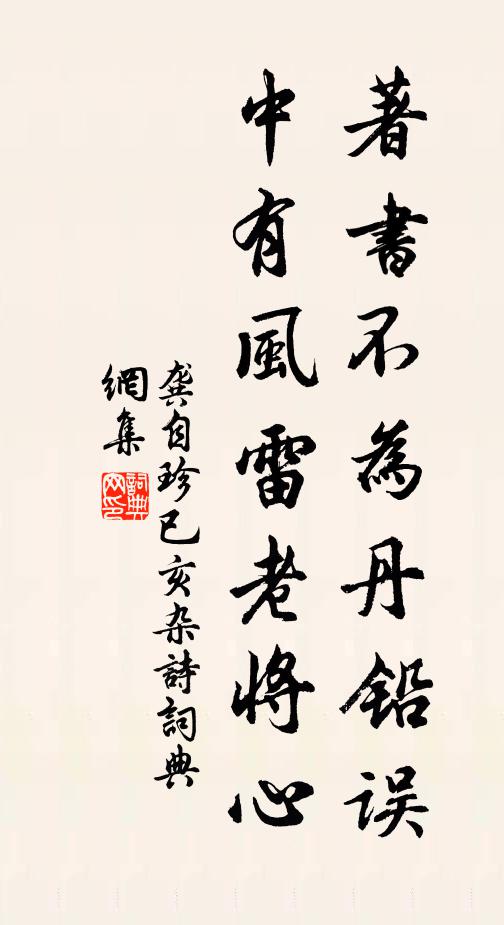 著書不為丹鉛误
中有風雷老將心
龚自珍已亥杂詩詞典
網集
詞典
网印